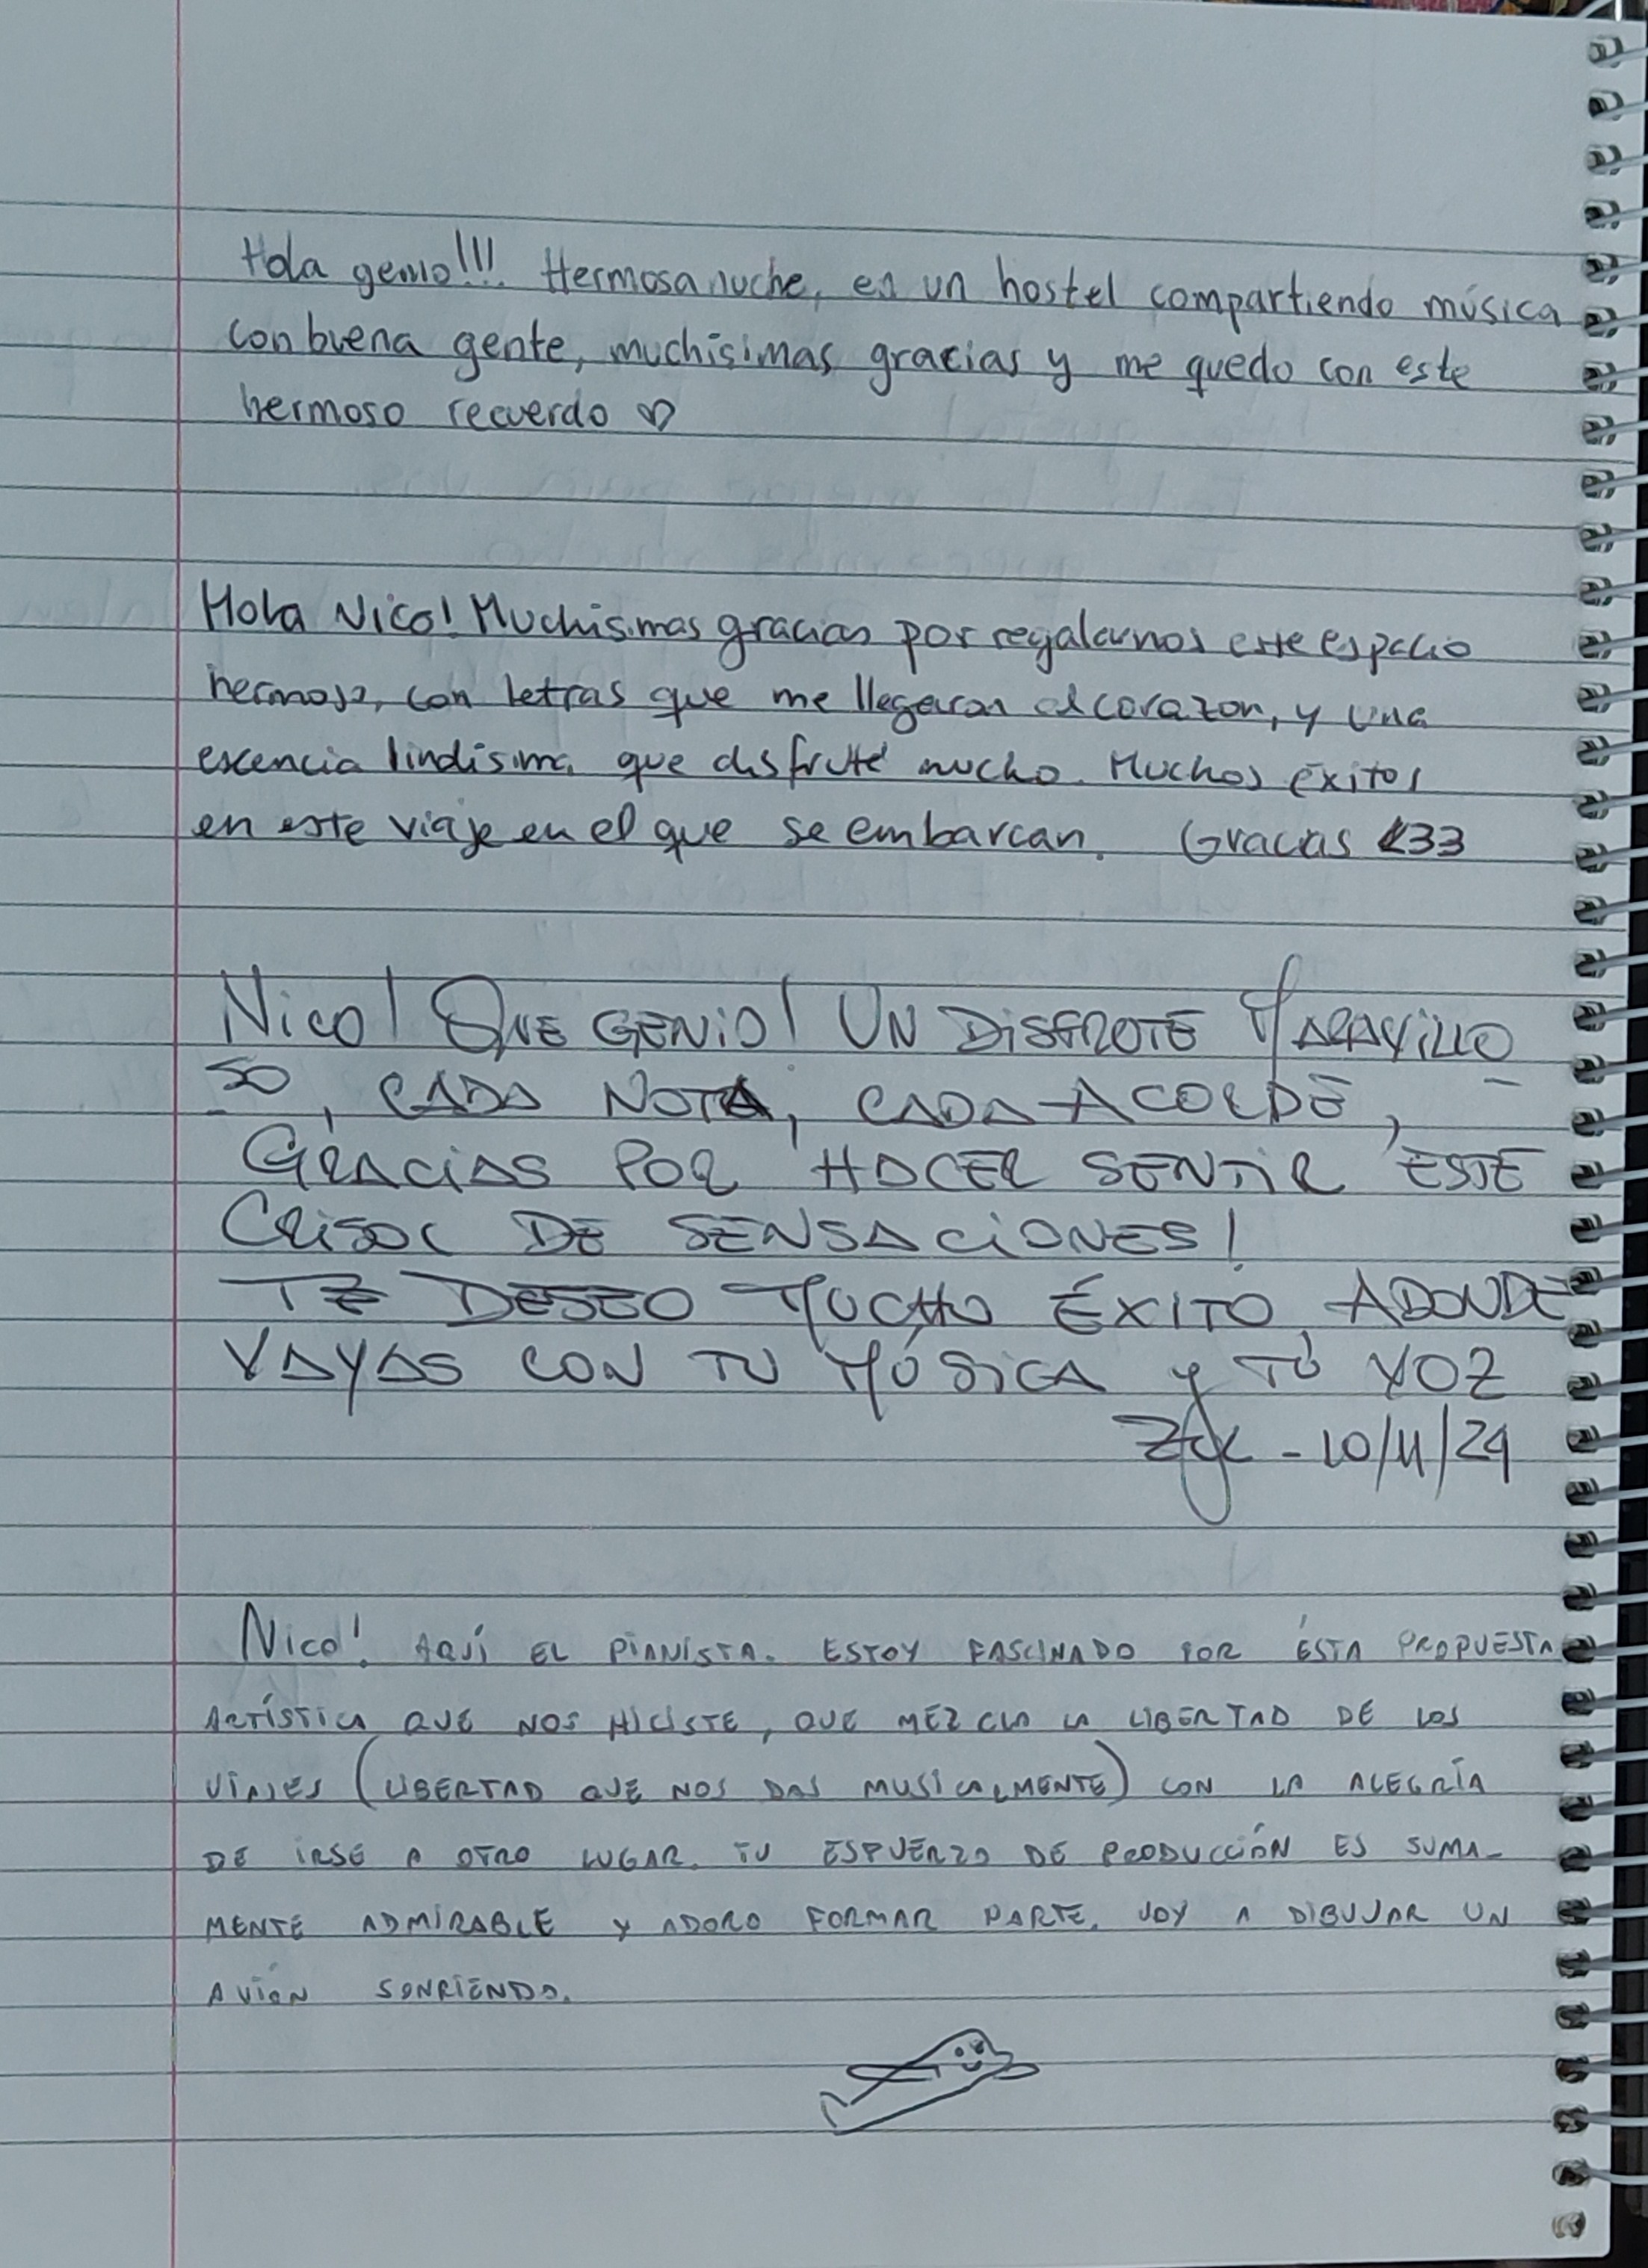 Hola genio!!! Hermosa noche, en un hostel compartiendo música
con buena gente, muchisimas gracias y me quedo con este
hermoso recuerdo ♡
Hola Nico! Muchisimas gracias por regalarnos este espacio
hermoso, con letras que me llegaron al corazon, y una
escencia lindisima que disfruté mucho. Muchos éxitos
en este viaje en el que se embarcan. Gracias <33
Nico! QUE GENIO! UN DISFRUTE MARAVILLO
SO, CADA NOTA, CADA ACORDE,
GRACIAS POR HACER SENTIR ESTE
CRISOL DE SENSACIONES!
TE DESEO MUCHO ÉXITO ADONDE
VAYAS CON TU MÚSICA y TU VOZ
- 10/11/24
Nico! AQUÍ EL PIANISTA. ESTOY FASCINADO POR ÉSTA PROPUESTA
ARTÍSTICA QUE NOS HICISTE, QUE MEZCLA LA LIBERTAD DE LOS
VIAJES (LIBERTAD QUE NOS DAS MUSICALMENTE) CON LA ALEGRÍA
DE IRSE A OTRO LUGAR. TU ESFUERZO DE PRODUCCIÓN ES SUMA-
MENTE ADMIRABLE Y ADORO FORMAR PARTE. VOY A DIBUJAR UN
AVIÓN SONRIENDO.